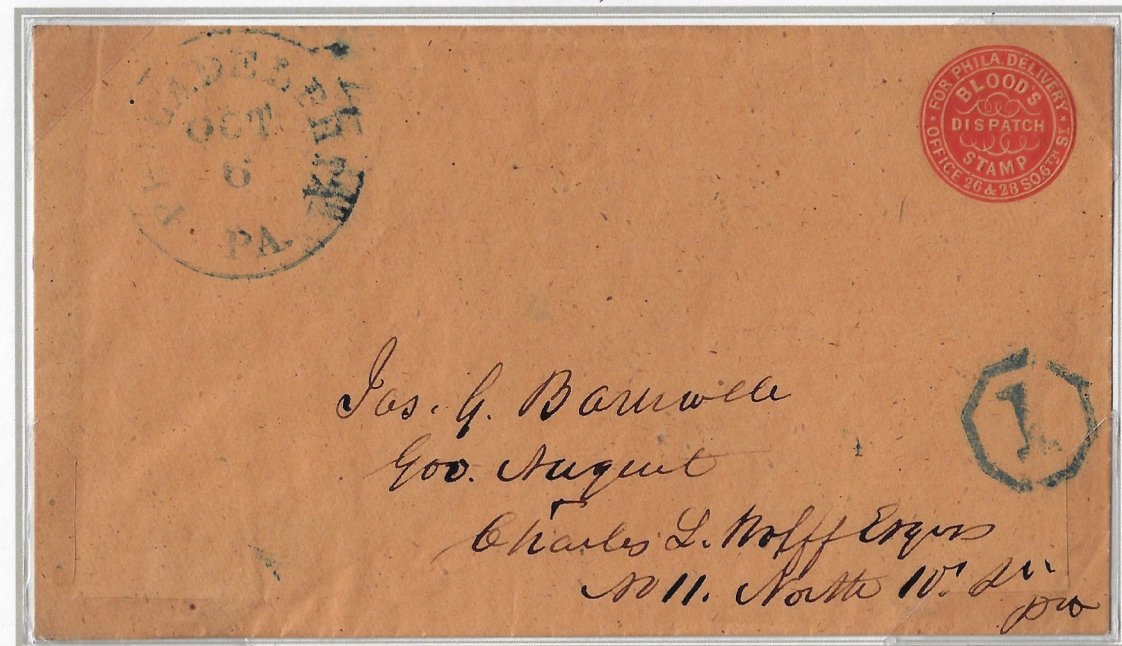 PHILADELPHIA
OCT
6
PA.
FOR PHILA. DELIVERY
BLOOD'S
DISPATCH
STAMP
OFFICE 26 & 28 SO. 6TH ST
1
Jas. G. Barnwell
Geo. August
Charles L. Wolff Esqrs
No 11. North 10th St.